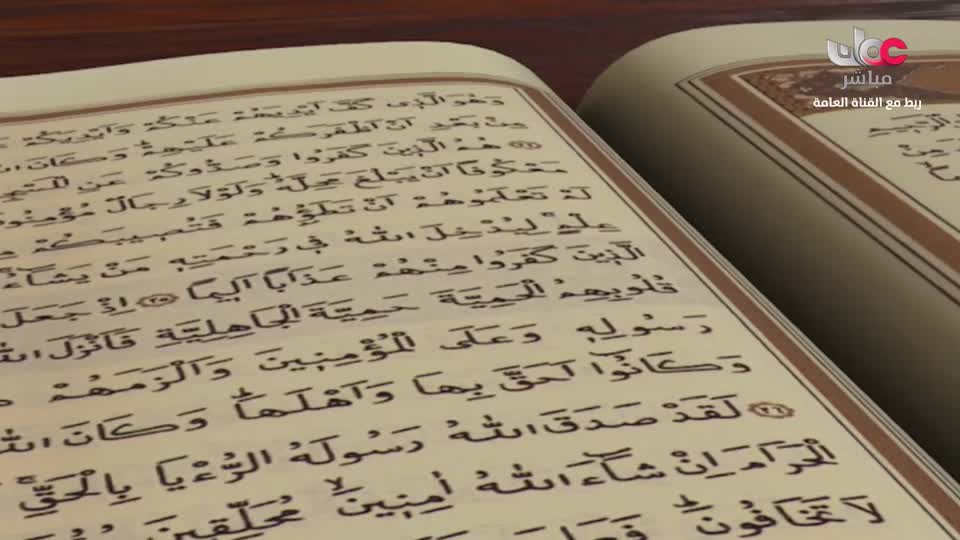 عمان
مباشر
ربط مع القناة العامة
وَهُوَ الَّذِي كَفَّ أَيْدِيَهُمْ عَنْكُمْ وَأَيْدِيَكُمْ
مِنْ بَعْدِ أَنْ أَظْفَرَكُمْ عَلَيْهِمْ وَكَانَ
﴿٢٤﴾ هُمُ الَّذِينَ كَفَرُوا وَصَدُّوكُمْ عَنِ
مَعْكُوفًا أَنْ يَبْلُغَ مَحِلَّهُ وَلَوْلَا رِجَالٌ
لَمْ تَعْلَمُوهُمْ أَنْ تَطَؤُهُمْ فَتُصِيبَكُمْ
عِلْمٍ لِيُدْخِلَ اللّٰهُ فِي رَحْمَتِهِ مَنْ يَشَاءُ
الَّذِينَ كَفَرُوا مِنْهُمْ عَذَابًا أَلِيمًا ﴿٢٥﴾ إِذْ جَعَلَ
قُلُوبِهِمُ الْحَمِيَّةَ حَمِيَّةَ الْجَاهِلِيَّةِ فَأَنْزَلَ
رَسُولِهِ وَعَلَى الْمُؤْمِنِينَ وَأَلْزَمَهُمْ
وَكَانُوا أَحَقَّ بِهَا وَأَهْلَهَا وَكَانَ
﴿٢٦﴾ لَقَدْ صَدَقَ اللّٰهُ رَسُولَهُ الرُّءْيَا بِالْحَقِّ
الْحَرَامَ إِنْ شَاءَ اللّٰهُ آمِنِينَ مُحَلِّقِينَ
لَا تَخَافُونَ